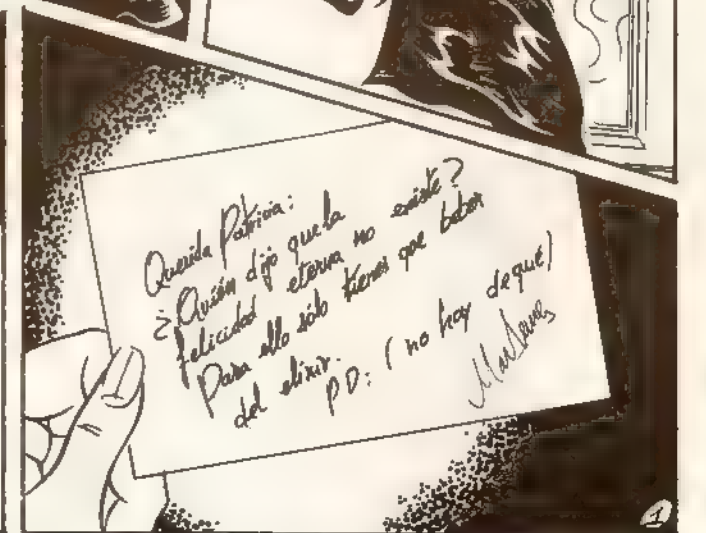 Querida Patricia:
¿Quién dijo que la
felicidad eterna no existe?
Para ello sólo tienes que beber
del elixir.
PD: (no hay de qué)
1